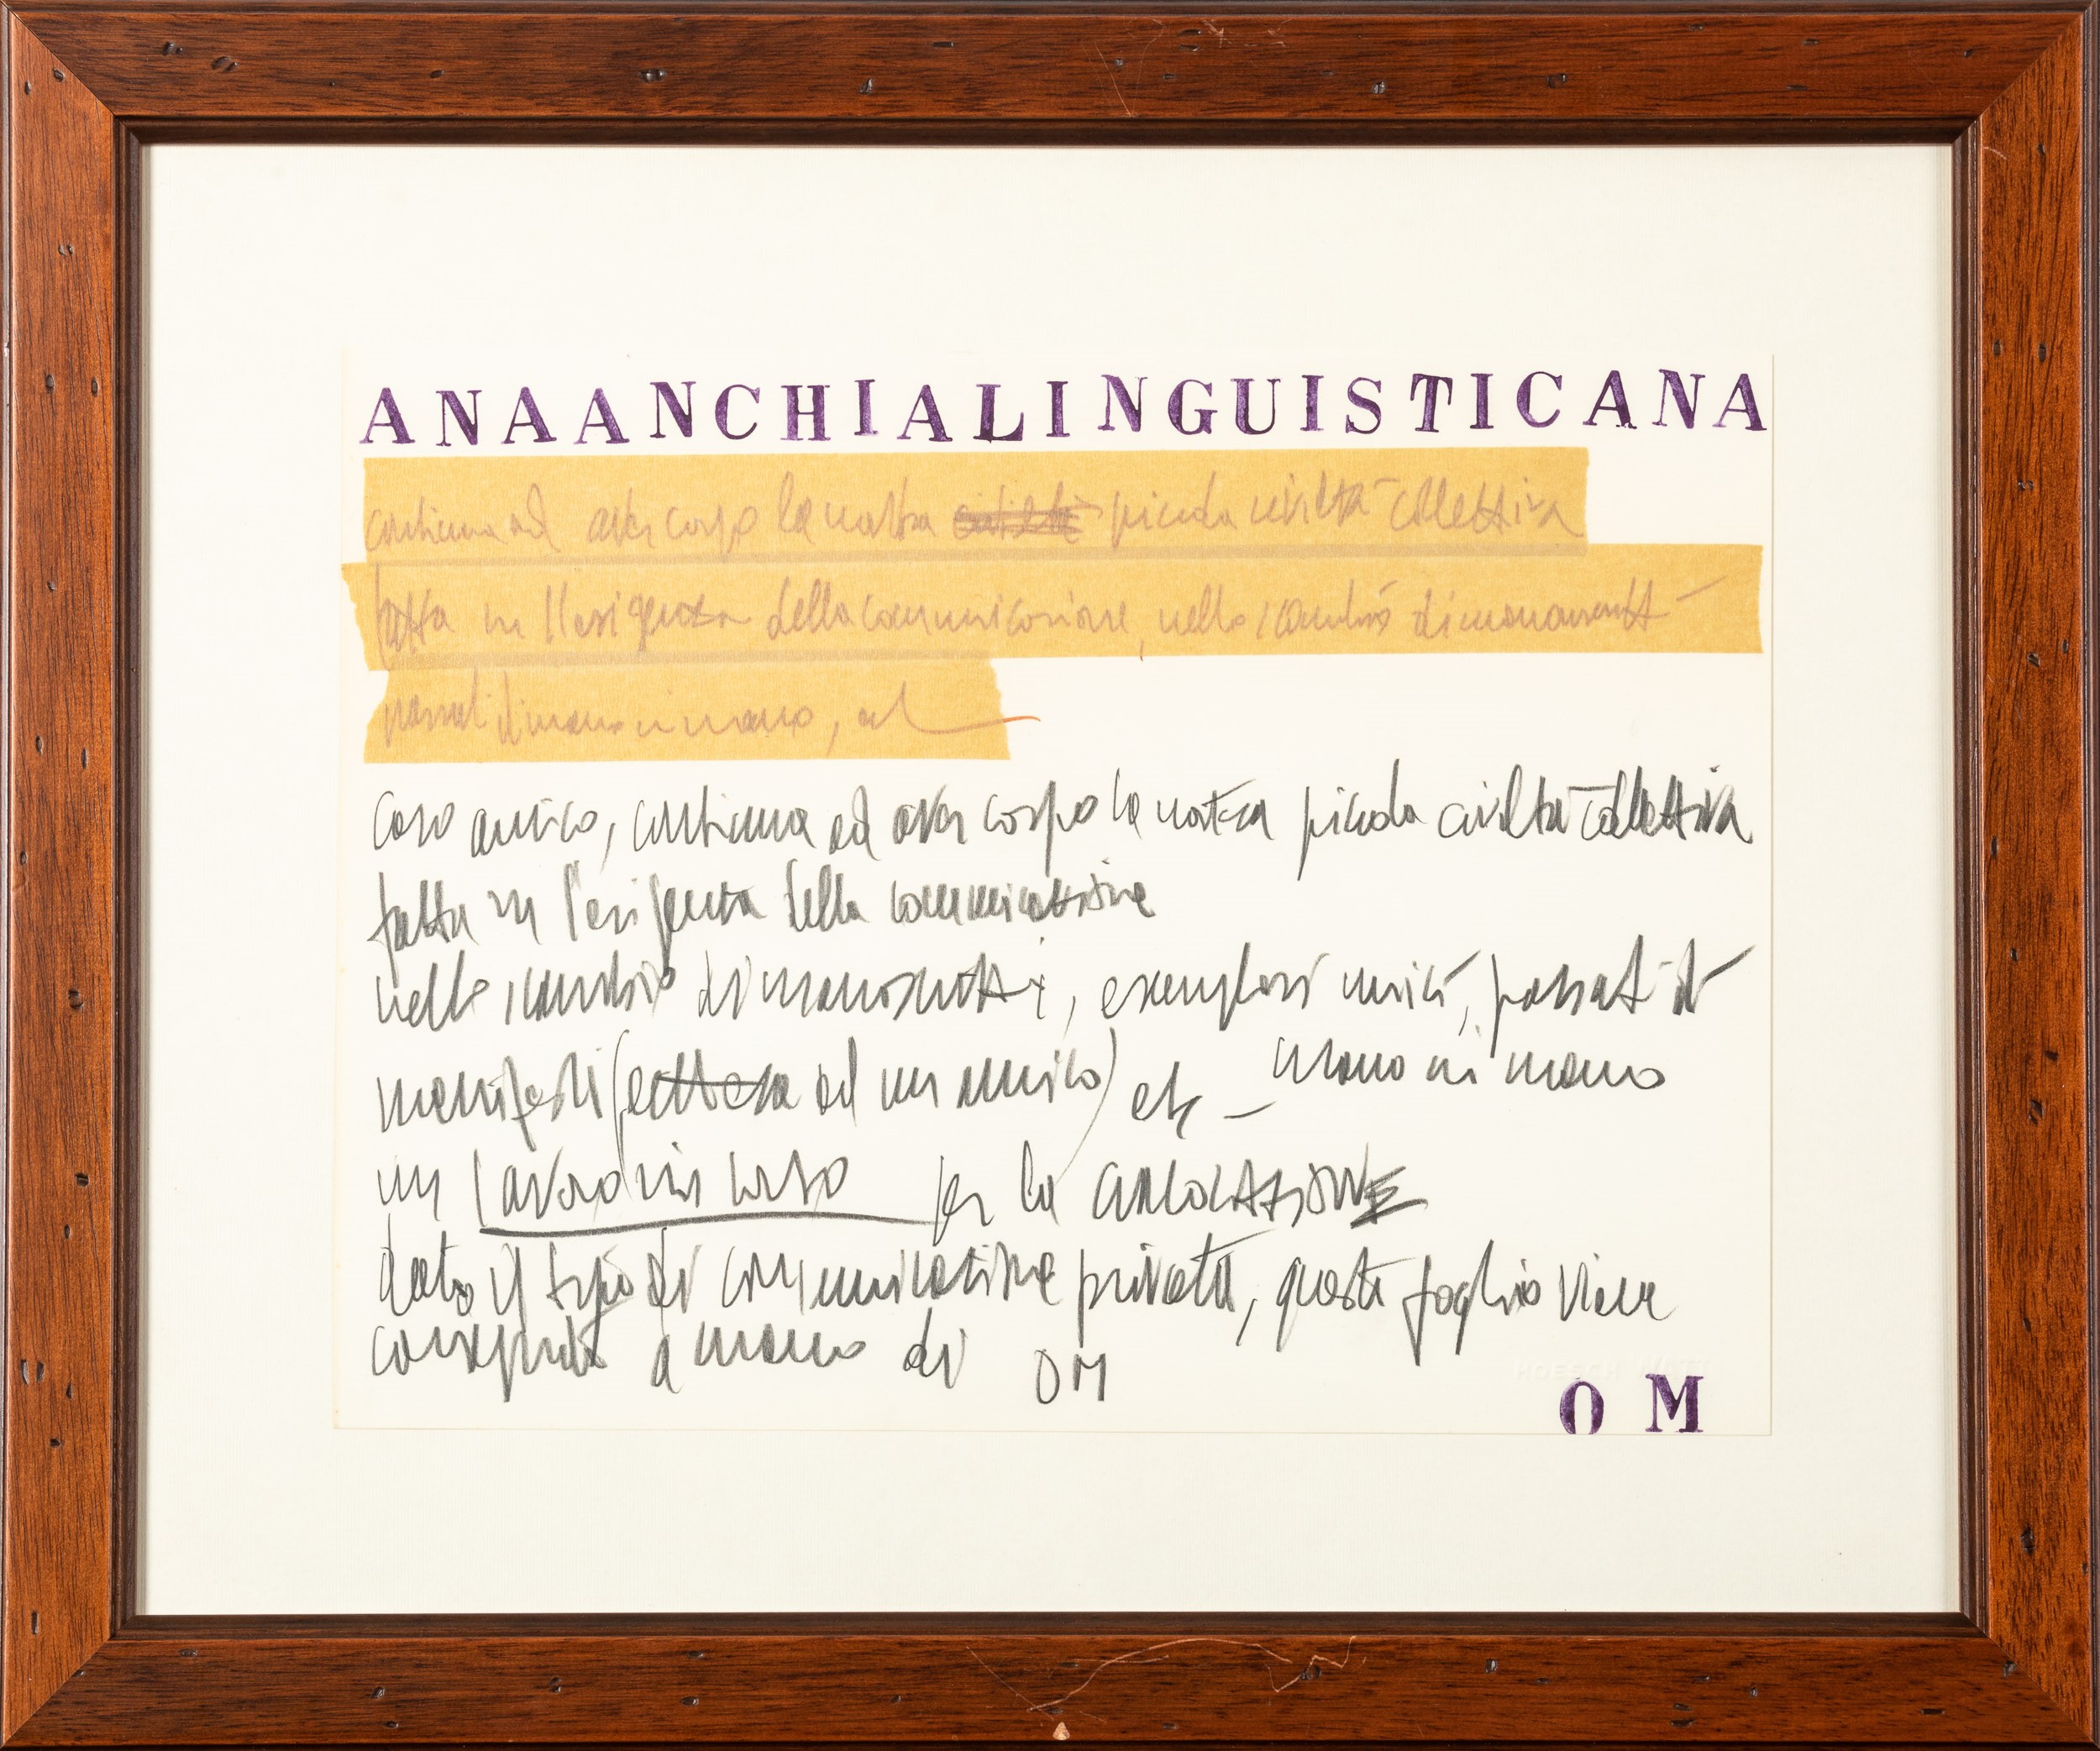 ANAANCHIALINGUISTICANA
continua ad aver corpo la nostra piccola civiltà collettiva
fatta in ll'esigenza della comunicazione, nello scambio di
passati di mano in mano, ed
caro amico, continua ad aver corpo la nostra piccola civiltà collettiva
fatta in l'esigenza della comunicazione
nello scambio di manoscritti, esemplari unici, passati di
mano in mano
manifesti (lettera ad un amico) etc –
un lavoro in corso per la CIRCOLAZIONE
dato il tipo di comunicazione privata, questo foglio viene
consegnato a mano di OM
O M